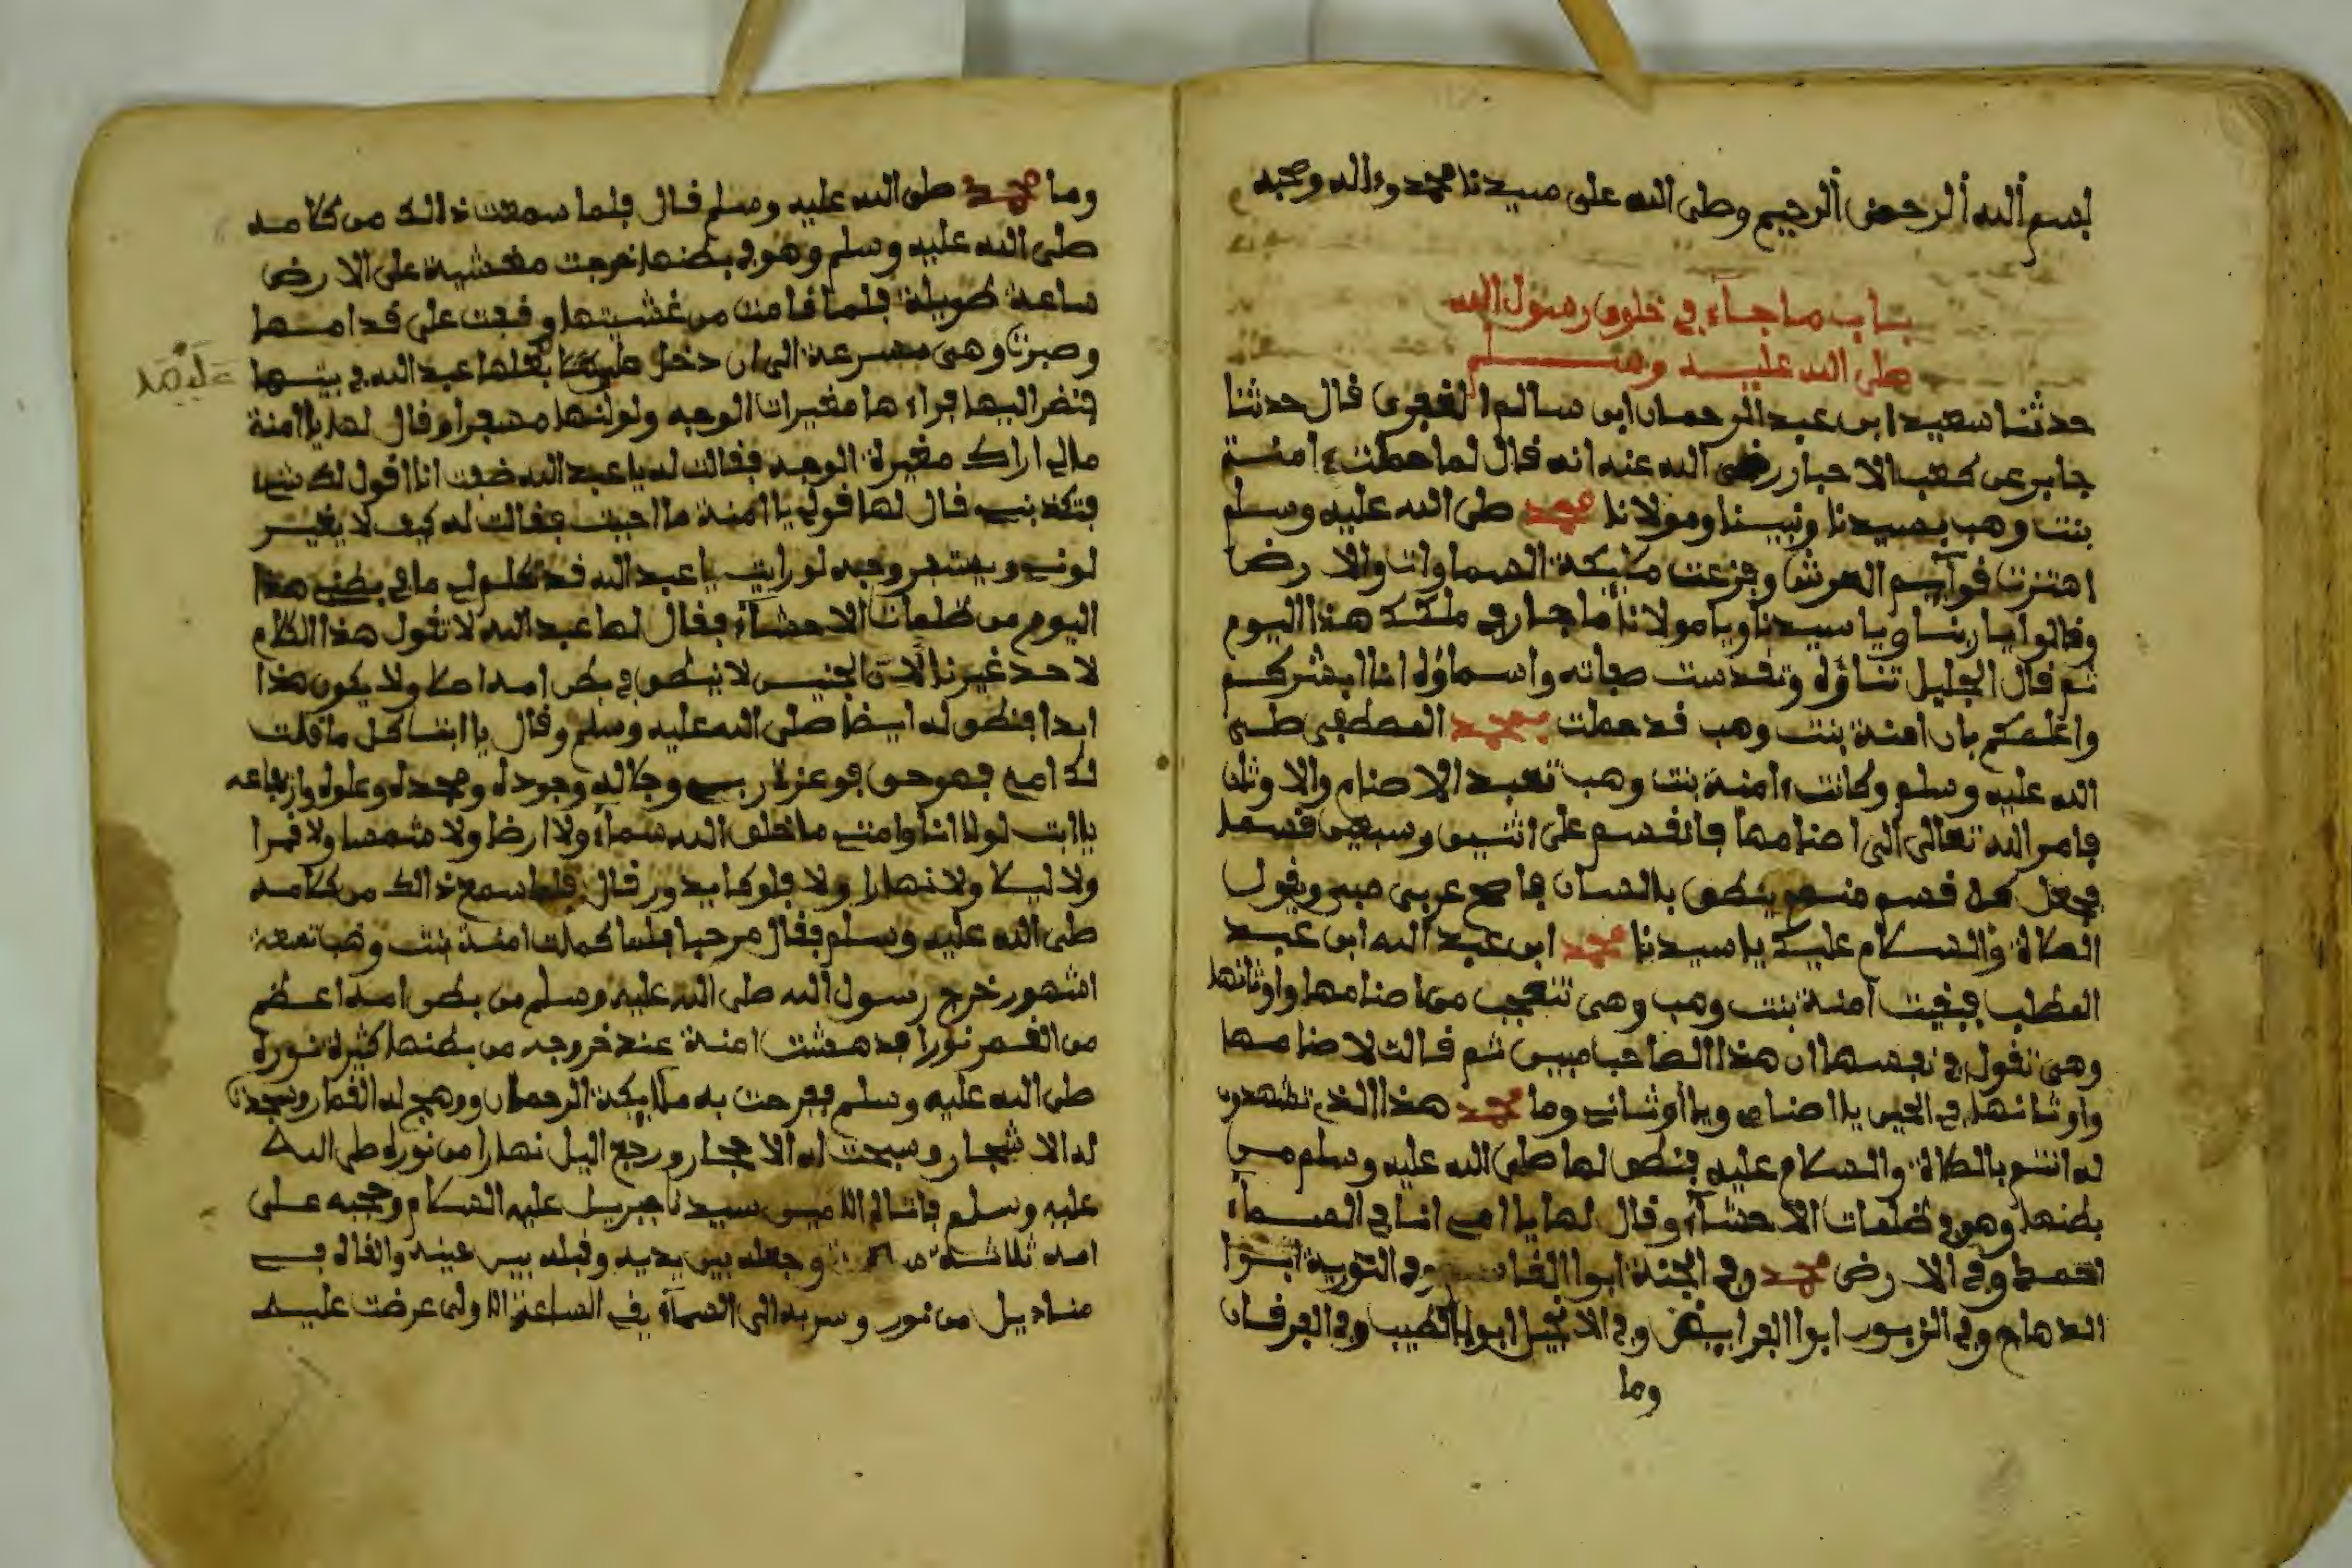 بسم الله الرحمن الرحيم وصلى الله على سيدنا محمد وءاله وصحبه
باب ما جاء في خلق رسول الله
صلى الله عليه وسلم
حدثنا سعيد ابن عبد الرحمان ابن سالم قال حدثنا
جابر عن كعب الاحبار رضي الله عنه انه قال لما حملت ءامنة
بنت وهب بسيدنا ونبينا ومولانا محمد صلى الله عليه وسلم
اهتزت قوآيم العرش وفزعت مليكة السماوات والارضا
وقالوا يا ربنا ويا سيدنا ويا مولانا ما جار في ملكك هذا اليوم
ثم قال الجليل تناؤه وتقدست صفاته واسماؤه انا ابشركم
واعلمكم بان امنة بنت وهب قد حملت بمحمد المصطفى صلى
الله عليه وسلم وكانت ءامنة بنت وهب تعبد الاصنام والاوثان
فامر الله تعالى الى اصنامها فانقسم على اثنين وسبعين قسما
فجعل كل قسم منهم ينطق بالسان فاصح عربي مبين ويقول
الصلاة والسلام عليك يا سيدنا محمد ابن عبد الله ابن عبد
المطلب فبقيت ءامنة بنت وهب وهي تتعجب من اصنامها واوثانها
وهي تقول في نفسها ان هذا الصاحب مبين ثم قالت لاصنامها
واوثانها في الحين يا اصنامي ويا أوثاني وما محمد هذا الذي تشهدون
له انتم بالصلاة والسلام عليه فنطق لها صلى الله عليه وسلم من
بطنها وهو في ظلمات الاحشآء وقال لها يا امي انا في السمآء
احمد وفي الارض محمد وفي الجنة ابوا القاسم وفي التورية ابوا
الدهاج وفي الزبور ابوا الفرايض وفي الانجيل ابوا الطيب وفي الفرقان
وما
وما محمد صلى الله عليه وسلم قال فلما سمعت ذالك من كلامه
صلى الله عليه وسلم وهو في بطنها خرجت مغشية على الارض
ساعة طويلة فلما فامت من غشيتها وقفت على قدامها
وصبرت وهي مسرعة الى ان دخل عليها بعلها عبد الله في بيتها
عليها
فنضر اليها فراءها مغيرات الوجه ولولنها مسفرا وقال لها يا ءامنة
مالي اراك مغيرة الوجه فقالت له يا عبد الله خفت انا اقول لك شيء
فتكذبني قال لها قولي يا ءامنة ما احببت فقالت له كيف لا يغير
لوني ويصفر وجهه لو رايت يا عبد الله قد تكلم لي ما في بطني هذا
اليوم من ظلمات الاحشآء فقال لها عبد الله لا تقول هذا الكلام
لاحد غيرنا لان الجنين لا ينطق في بطن امه اصلا ولا يكون هذا
ابدا فنطق له ايضا صلى الله عليه وسلم وقال يا ابت كل ما قلت
لك امي فهو حق فو عزة ربي وجلاله وجوده ومجده وعلوه وارتفاعه
يا ابت لولا انا وامتي ما خلق الله سمآء ولا ارضا ولا شمسا ولا قمرا
ولا ليلا ولا نهارا ولا فلوكا يدور قال فلما سمع ذالك من كلامه
صلى الله عليه وسلم فقال مرحبا فلما كملت امنة بنت وهب تسعة
اشهور خرج رسول الله صلى الله عليه وسلم من بطن امه اعظم
من القمر نورا فدهشت امنة عند خروجه من بطنها كثيرة نوره
صلى الله عليه وسلم ففرحت به ملايكة الرحمان ووهج له القمار وسجدت
له الاشجار وسبحت له الاحجار ورجع اليل نهارا من نوره صلى الله
عليه وسلم فاتا له الامين سيدنا جبريل عليه السلام وحجبه على
امه ثلاثة وجعله بين يديه وقبله بين عينه والقاه في
مناديل من نور وسر به الى السمآء في الساعة الاولى عرضت عليه